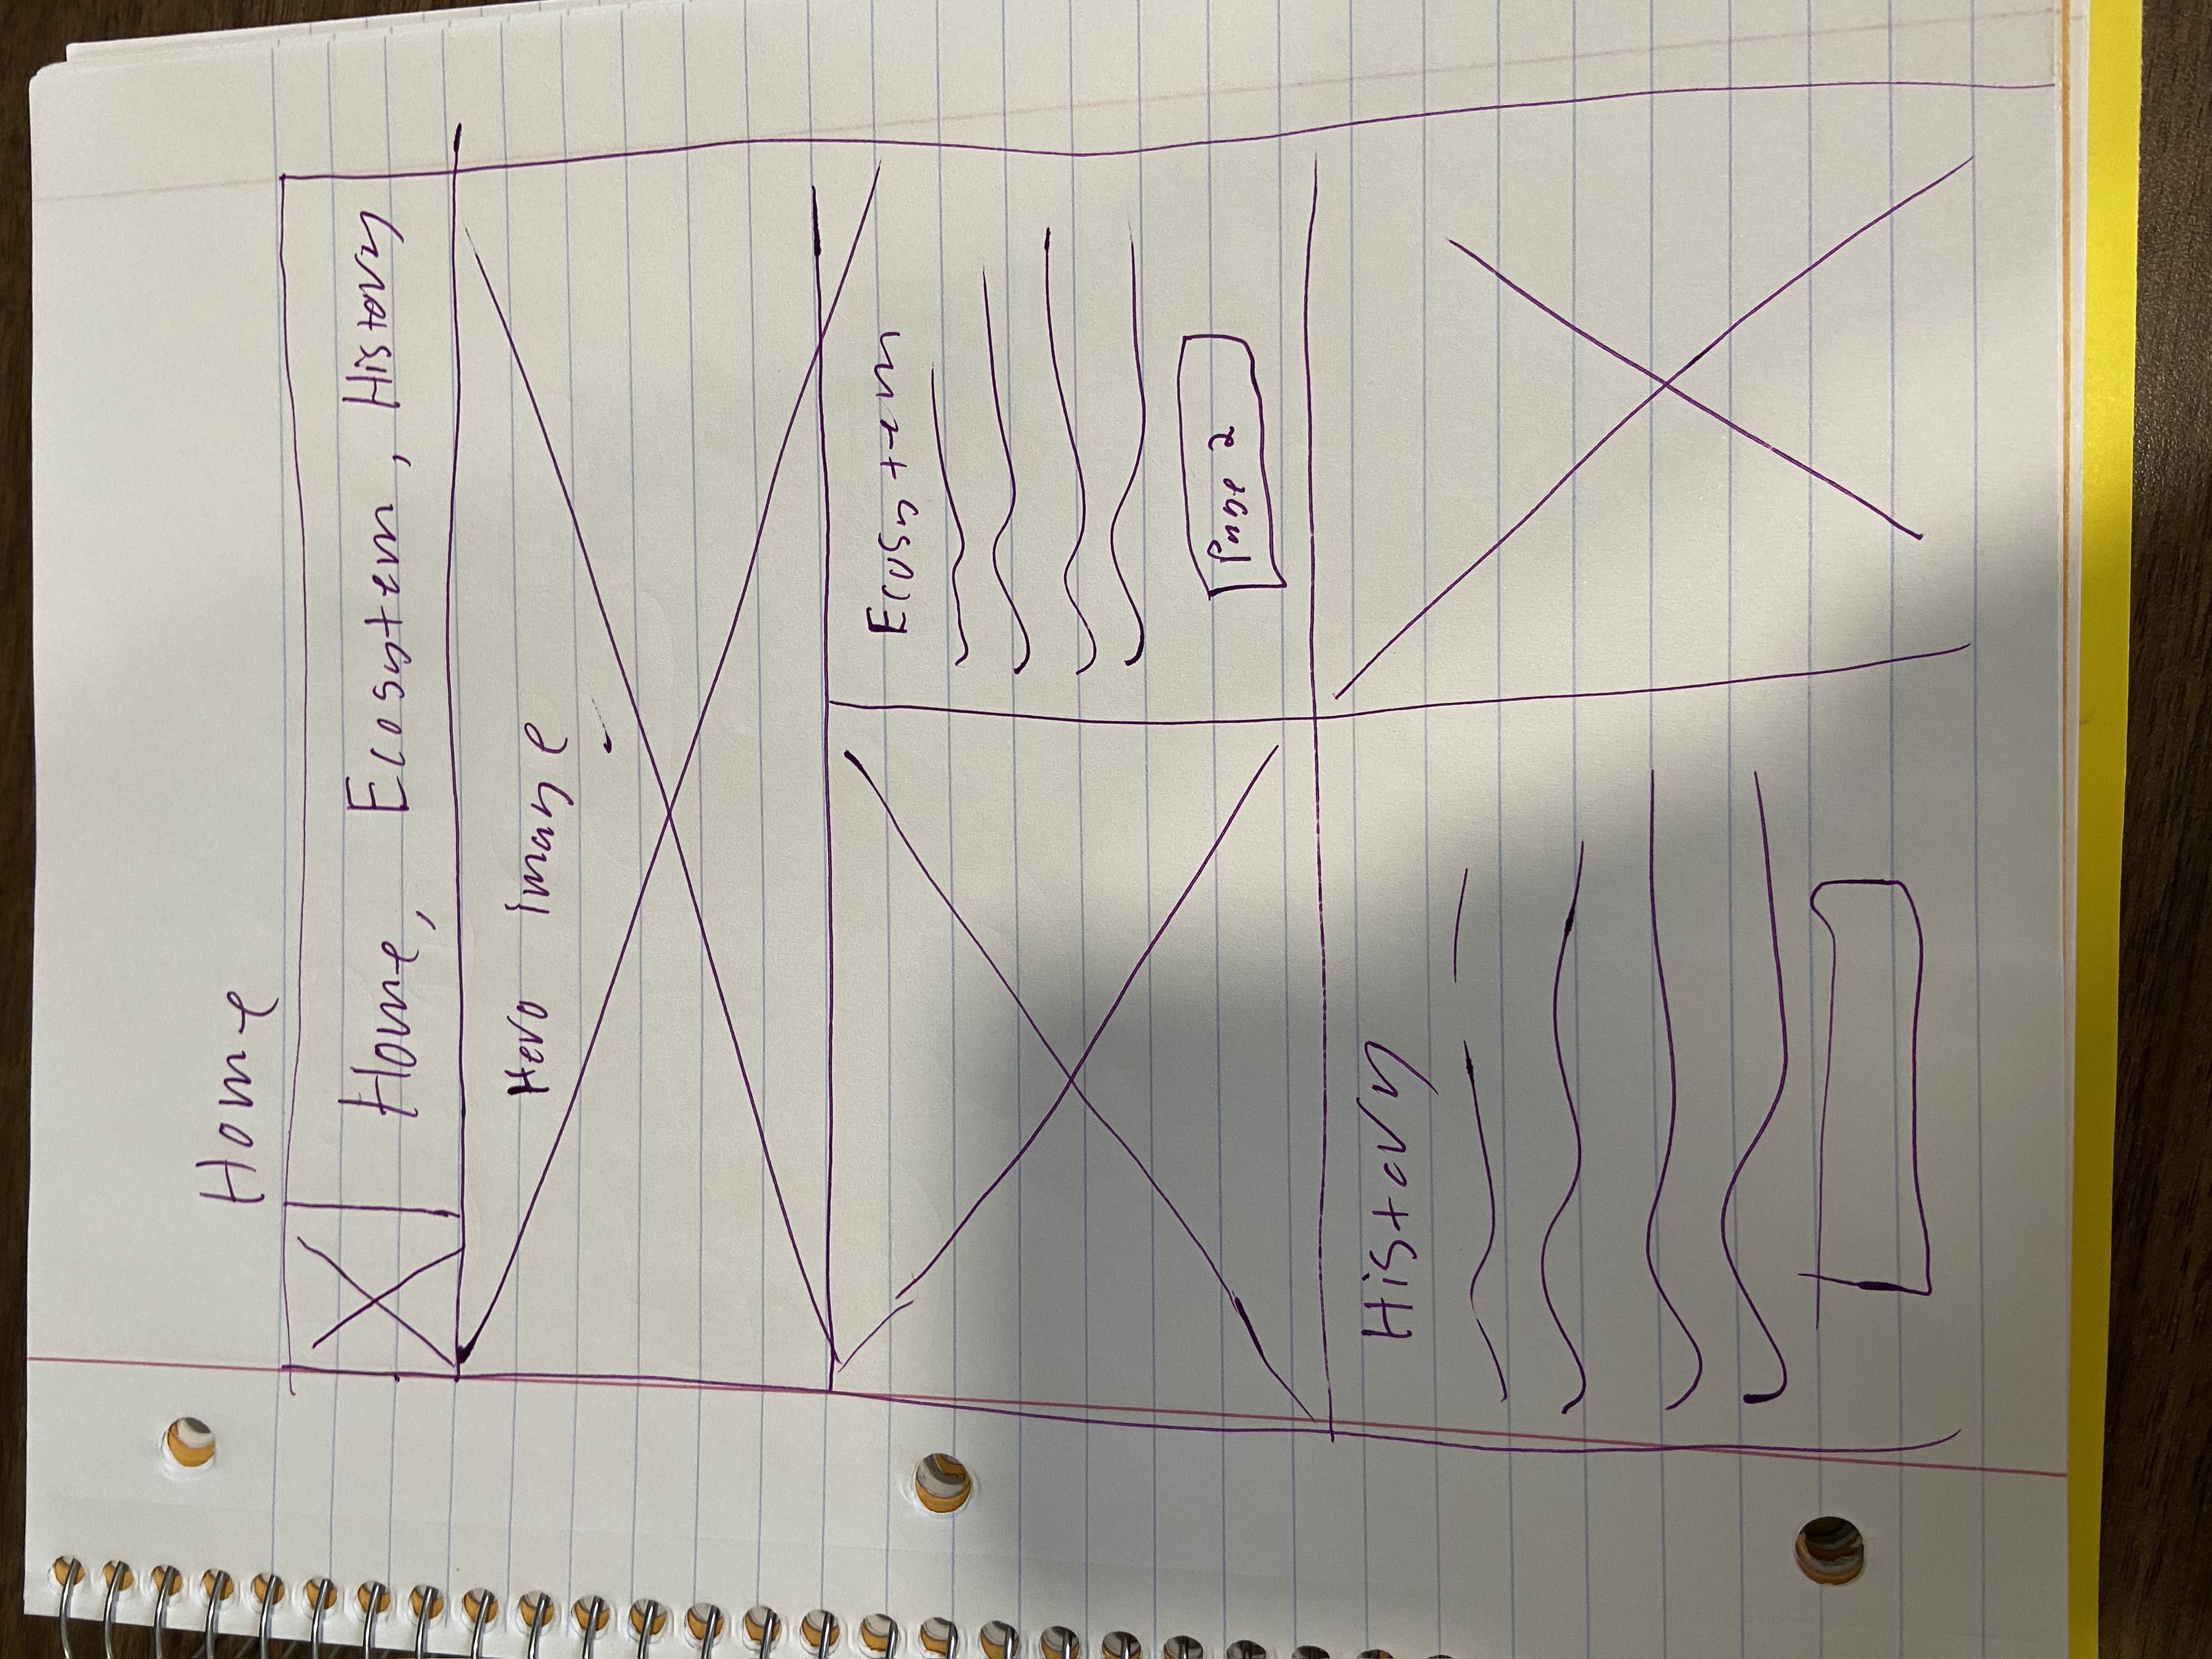 Home
Home, Ecosystem, History
Hero image
Ecosystem
Page 2
History